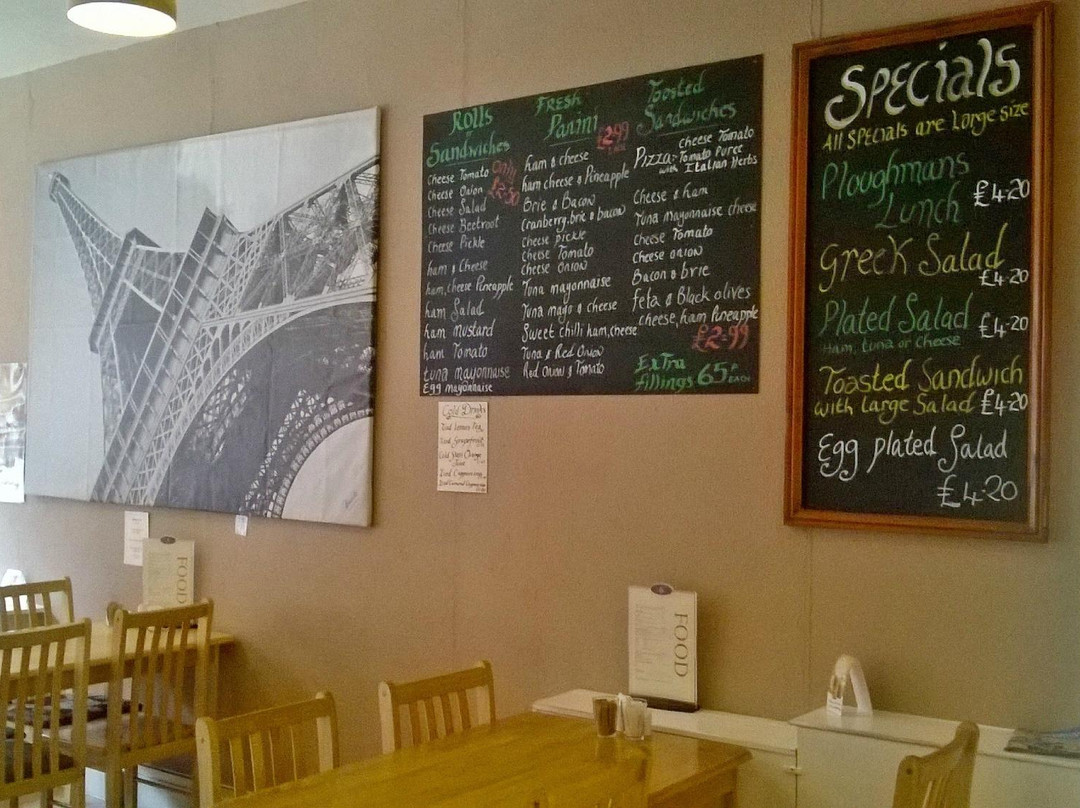 Rolls
Sandwiches
Only
£2·50
Cheese Tomato
Cheese Onion
Cheese Salad
Cheese Beetroot
Cheese Pickle
ham & Cheese
ham, cheese Pineapple
ham Salad
ham mustard
ham Tomato
tuna mayonnaise
Egg mayonnaise
Fresh
Panini
£2·99
ham & cheese
ham cheese & Pineapple
Brie & Bacon
Cranberry, brie & bacon
Cheese pickle
Cheese Tomato
Cheese Onion
Tuna mayonnaise
Tuna mayo & cheese
Sweet chilli ham, cheese
Tuna & Red Onion
Red Onion & Tomato
Toasted
Sandwiches
Pizza:- cheese Tomato
Tomato Puree
with Italian Herbs
Cheese & ham
Tuna mayonnaise cheese
Cheese Tomato
Cheese onion
Bacon & brie
feta & Black olives
cheese, ham Pineapple
£2-99
Extra
fillings 65P EACH
Cold Drinks
Specials
All Specials are large size
Ploughmans
Lunch £4·20
Greek Salad
£4·20
Plated Salad
Ham, tuna or cheese £4·20
Toasted Sandwich
with large Salad £4·20
Egg plated Salad
£4·20
FOOD
FOOD